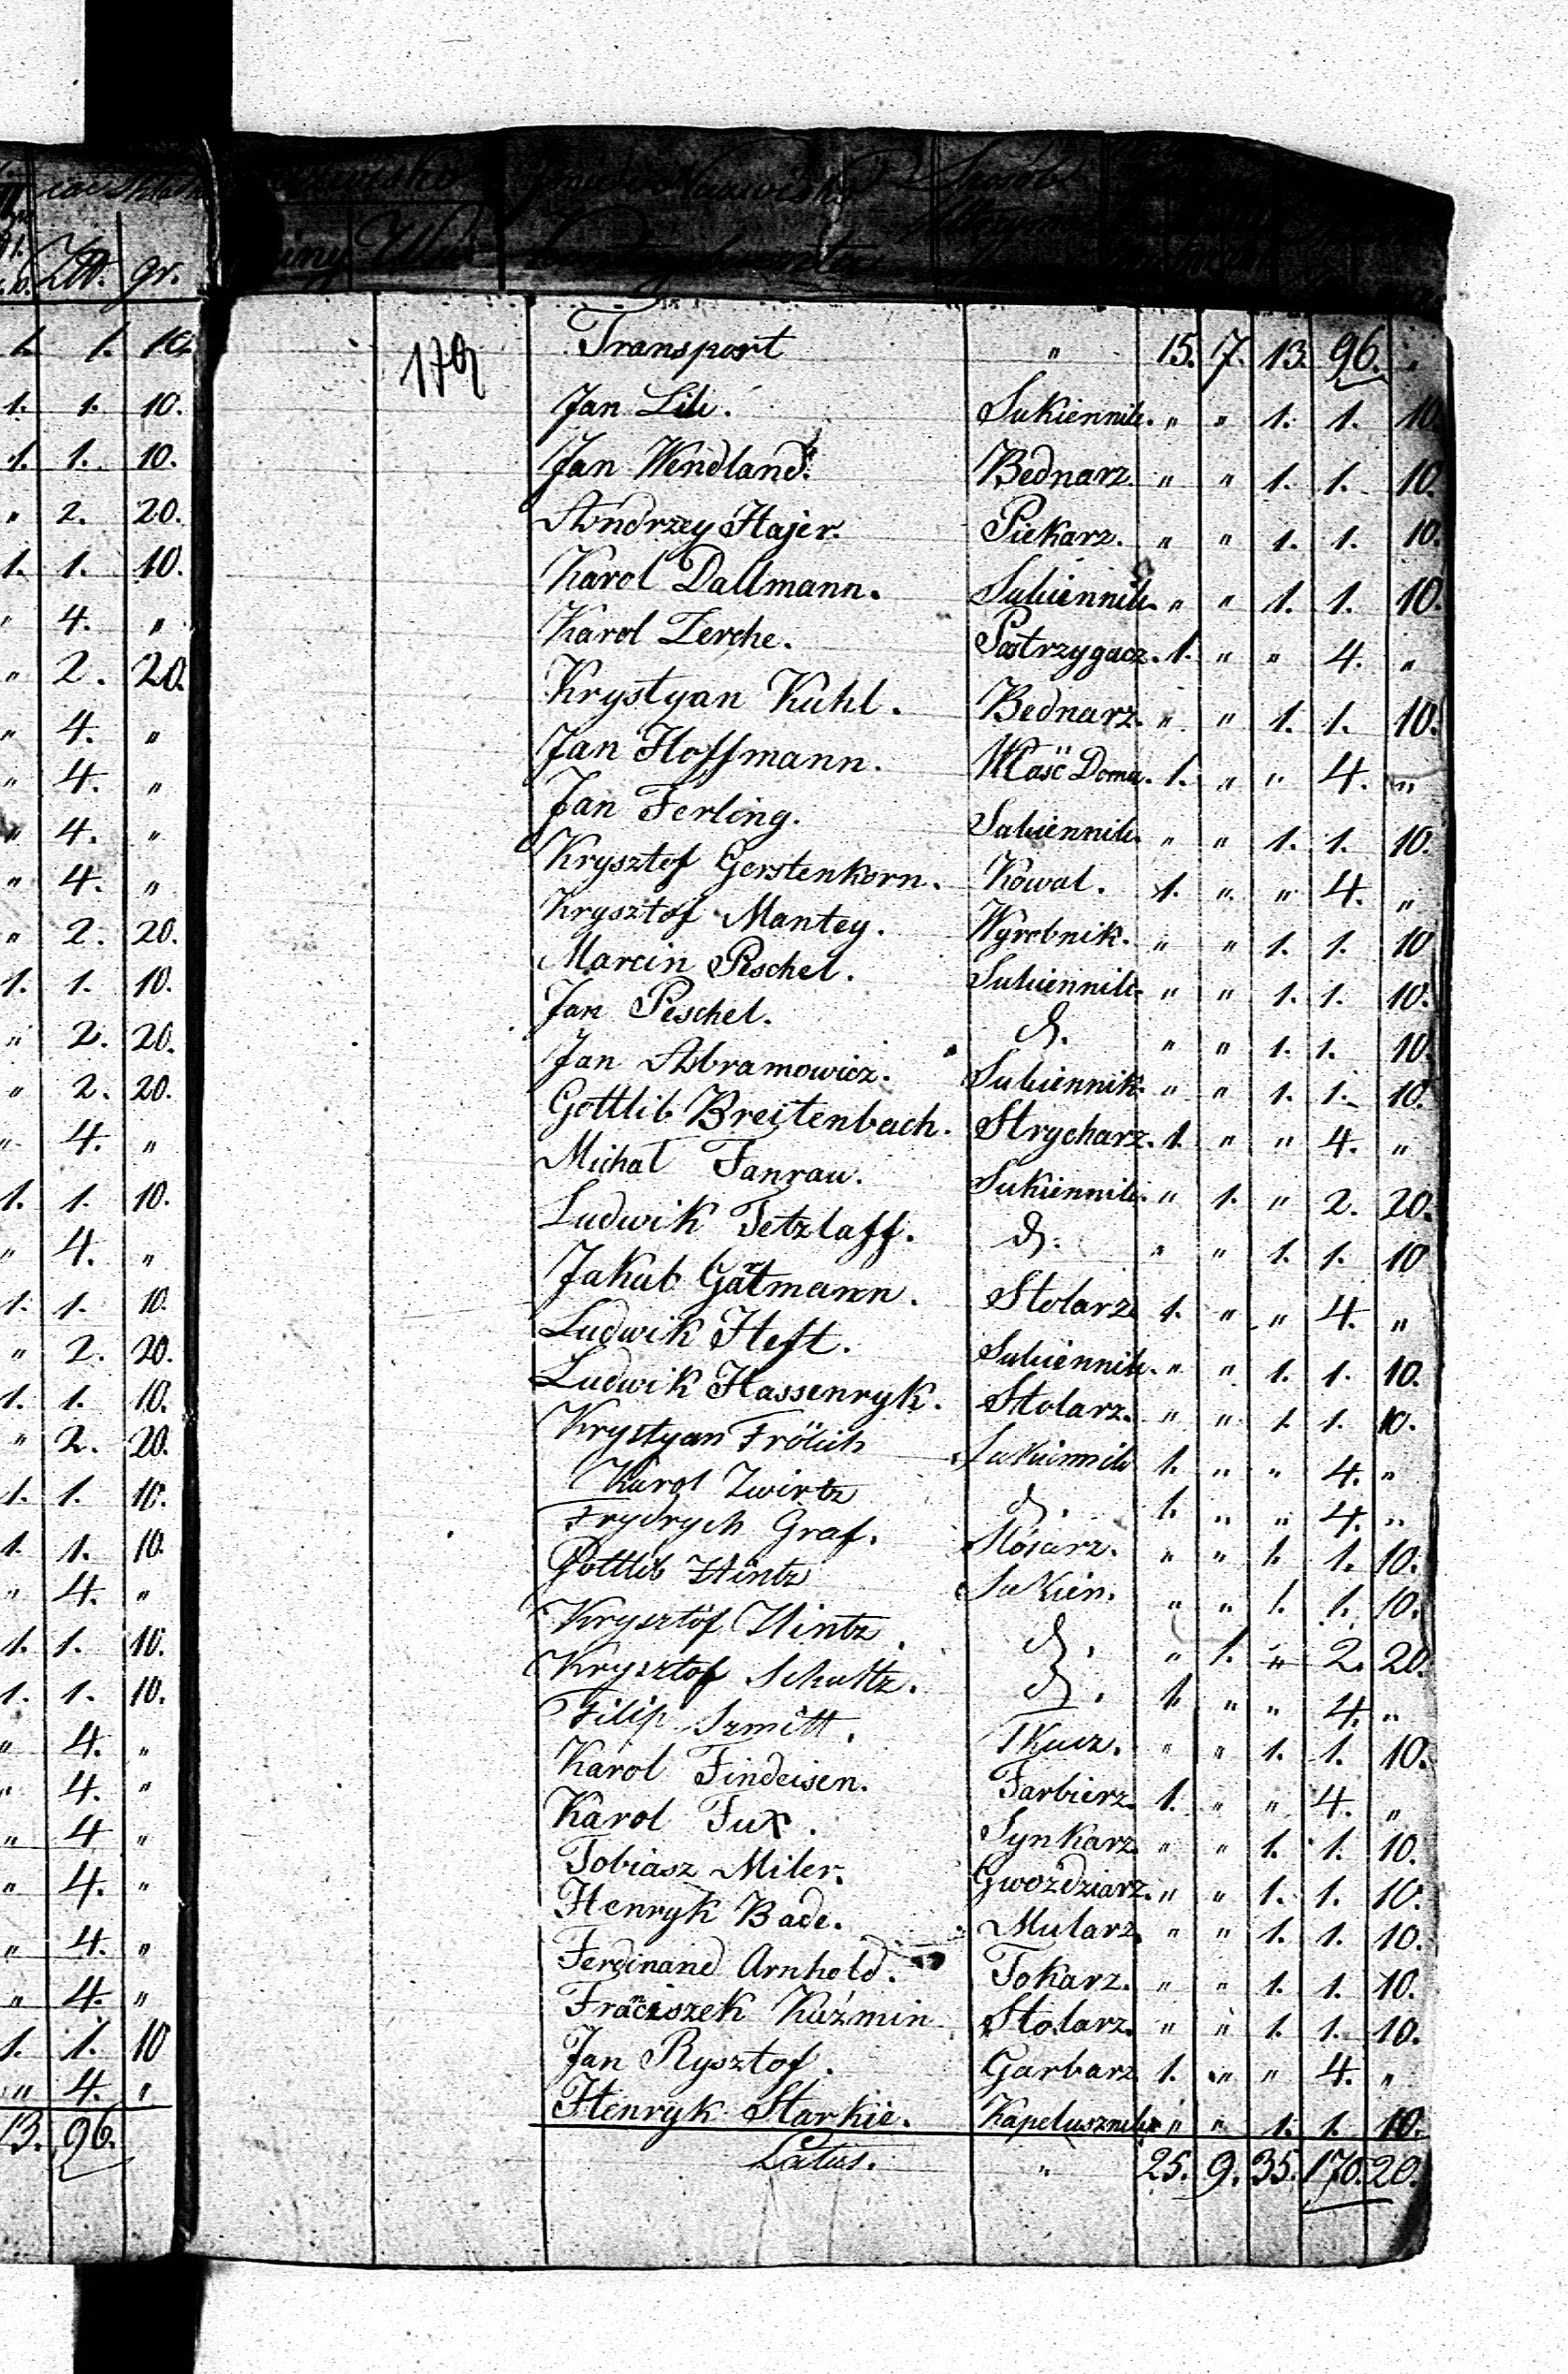 Złt. gr.
1. 1. 10.
1. 1. 10.
1. 1. 10.
" 2. 20.
1. 1. 10.
" 4. "
" 2. 20.
" 4. "
" 4. "
" 4. "
" 4. "
" 2. 20.
1. 1. 10.
" 2. 20.
" 2. 20.
" 4. "
1. 1. 10.
" 4. "
1. 1. 10.
" 2. 20.
1. 1. 10.
" 2. 20.
1. 1. 10.
1. 1. 10.
" 4. "
1. 1. 10.
1. 1. 10.
" 4. "
" 4. "
" 4 "
" 4. "
" 4. "
" 4. "
1. 1. 10
" 4. "
13. 96.
Transport " 15. 7. 13. 96. "
Jan Lik. Sukiennik. " " 1. 1. 10.
Jan Wendland. Bednarz. " " 1. 1. 10.
Andrzey Hajer. Piekarz. " " 1. 1. 10.
Karol Dallmann. Sukiennik. " " 1. 1. 10.
Karol Zerche. Postrzygacz. 1. " " 4. "
Krystyan Kuhl. Bednarz. " " 1. 1. 10.
Jan Hoffmann. Właść Domu. 1. " " 4. "
Jan Ferling. Sukiennik. " " 1. 1. 10.
Krysztof Gerstenkorn. Kowal. 1. " " 4. "
Krysztof Mantey. Wyrobnik. " " 1. 1. 10
Marcin Peschel. Sukiennik. " " 1. 1. 10.
Jan Peschel. d. " " 1. 1. 10.
Jan Abramowicz. Sukiennik. " " 1. 1. 10.
Gottlib Breitenbach. Strycharz. 1. " " 4. "
Michał Fanrau. Sukiennik. " 1. " 2. 20.
Ludwik Tetzlaff. d. " " 1. 1. 10
Jakub Gärtmann. Stolarz 1. " " 4. "
Ludwik Heft. Sukiennik. " " 1. 1. 10.
Ludwik Hassenryk. Stolarz. " " 1. 1. 10.
Krystyan Frölich Sukiennik 1. " " 4. "
Karol Zwirtz d. 1. " " 4. "
Frydrych Graf. Slósarz. " " 1. 1. 10.
Gottlib Hintz Sukien. " " 1. 1. 10.
Krysztof Hintz. d. " 1. " 2. 20.
Krysztof Schultz. d. 1. " " 4. "
Filip Szmitt. Tkacz. " " 1. 1. 10.
Karol Findeisen. Farbierz. 1. " " 4. "
Karol Fux. Synkarz. " " 1. 1. 10.
Tobiasz Miler. Gwoździarz. " " 1. 1. 10.
Henryk Bade. Mularz. " " 1. 1. 10.
Ferdinand Arnhold. Tokarz. " " 1. 1. 10.
Franciszek Kuźmin Stolarz. " " 1. 1. 10.
Jan Rysztof. Garbarz 1. " " 4. "
Henryk Starkie. Kapelusznik " " 1. 1. 10.
Latus. " 25. 9. 35. 170. 20.